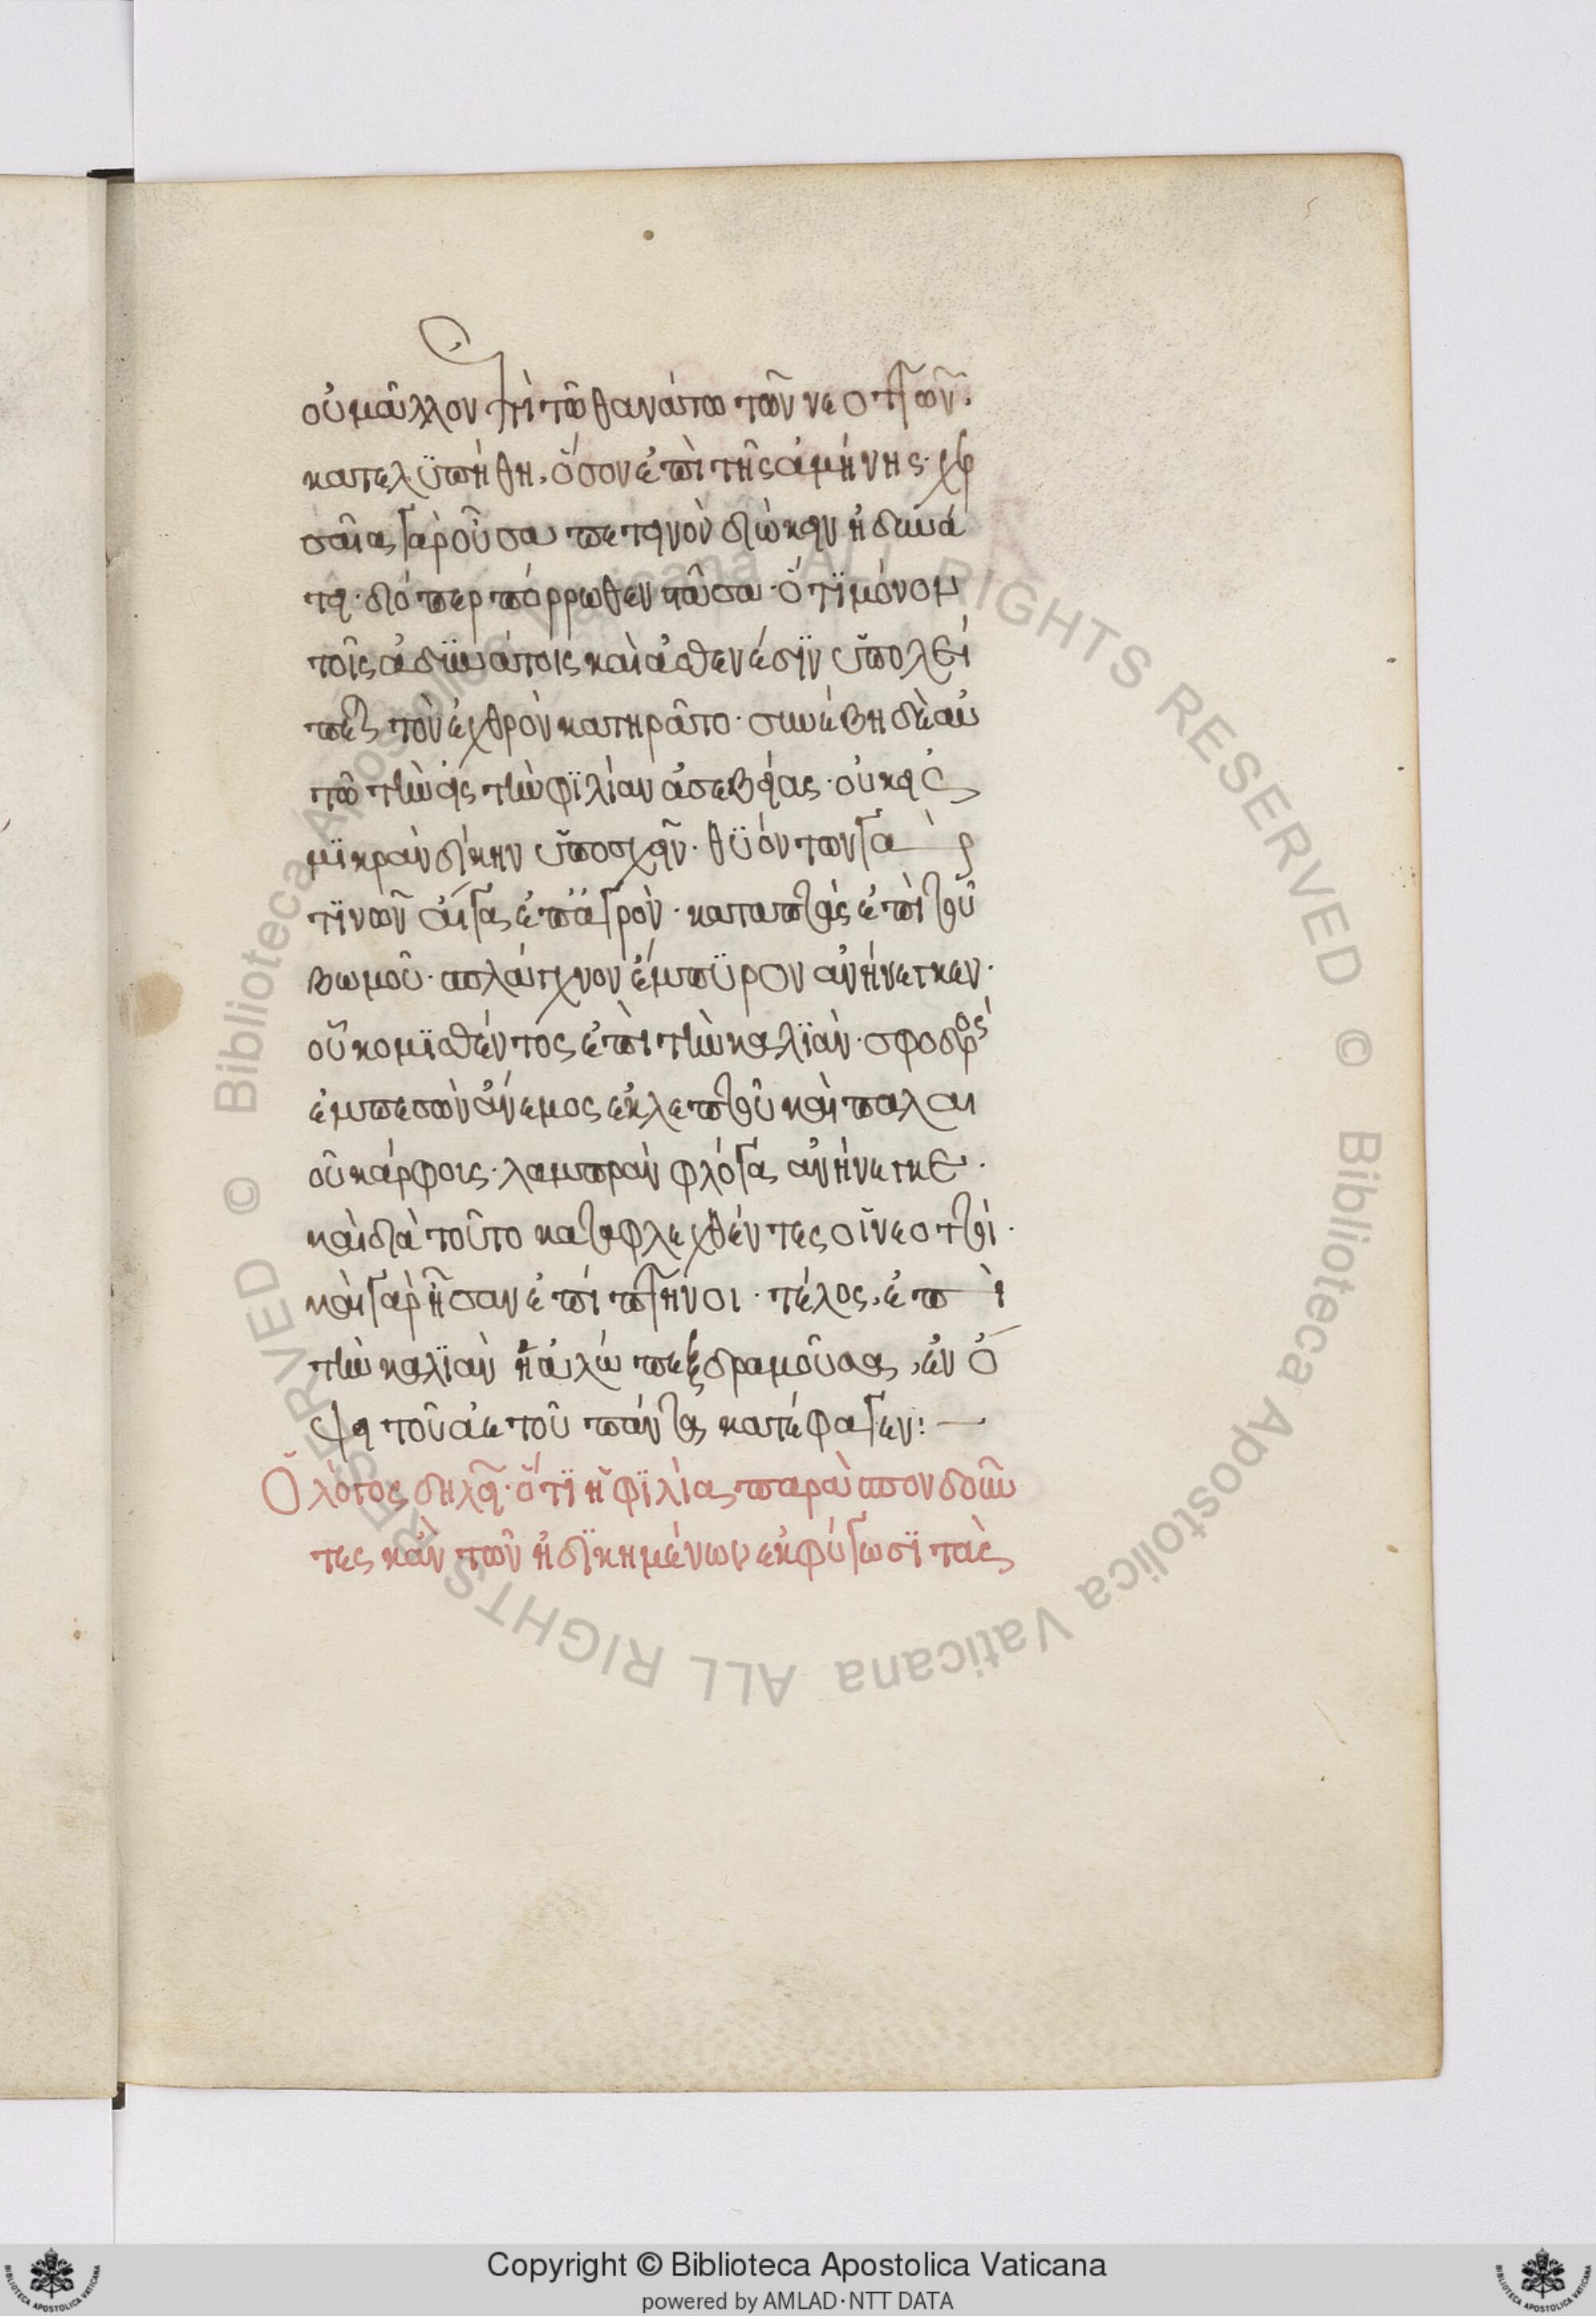 οὐ μᾶλλον ἐπὶ τῶ θανάτω τῶν νεοττῶν.
κατελϋπήθη, ὅσον ἐπὶ τῆς ἀμήνης· χερ
σαῖα γὰρ οὖσα πετεινὸν διώκειν ἠδυνά
τει· διόπερ πόρρωθεν στᾶσα· ὅ τϊ μόνον
τοῖς ἀδϋνάτοις καὶ ἀσθενέσϊν ὑπολεί
πεται τὸν ἐχθρὸν κατηρᾶτο· συνέβη δὲ αὐ
τῶ τὴν εἰς τὴν φϊλίαν ἀσεβείας· οὐκ εἰς
μϊκρὰν δίκην ὑποσχεῖν· θϋόντων γὰρ
τϊνῶν αἶγα ἐπ' ἀγρὸν· καταπτὰς ἐπὶ τοῦ
βωμοῦ· σπλάγχνον ἔμπϋρον ἀνήνεγκεν·
οὗ κομϊσθέντος ἐπὶ τὴν καλϊὰν· σφοδρὸς
ἐμπεσὼν ἄνεμος ἐκ λεπτοῦ καὶ παλαι
οῦ κάρφοις· λαμπρὰν φλόγα ἀνήνεγκε·
καὶ διὰ τοῦτο καταφλεχθέντες οἱ νεοττοὶ·
καὶ γὰρ ἦσαν ἐπὶ πτηνοι· τέλος, ἐπὶ
τὴν καλϊὰν ἡ ἀλώπηξ δραμοῦσα, ἐν ὄ
ψει τοῦ ἀετοῦ πάντας κατέφαγεν:—
Ὁ λόγος δηλεῖ· ὅτϊ ἡ φϊλία παρασπονδοῦν
τες κἂν τῶν ἠδϊκημένων ἐκφύγωσϊ τὰς
Copyright © Biblioteca Apostolica Vaticana
powered by AMLAD·NTT DATA